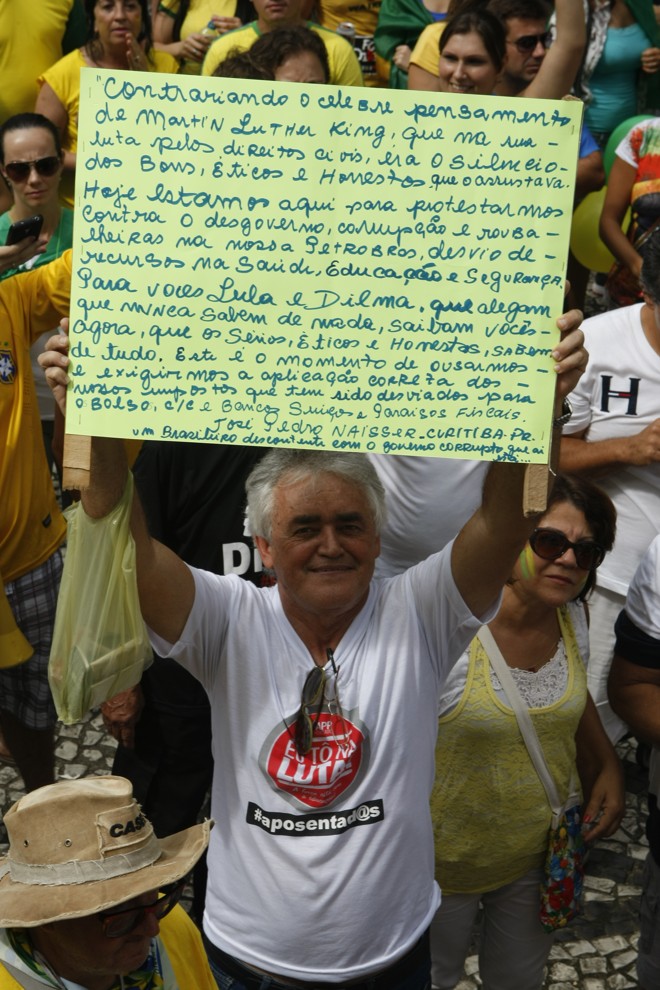 "Contrariando o celebre pensamento
de Martin Luther King, que na sua -
luta pelos direitos civis, era o silencio -
dos Bons, Éticos e Honestos que o assustava.
Hoje estamos aqui para protestarmos
contra o desgoverno, corrupção e rouba -
lheiras na nossa PETROBRAS, desvio de -
recursos na Saúde, Educação e SEGURANÇA.
Para voces Lula e Dilma, que alegam
que nunca sabem de nada, saibam vocês -
agora, que os Sérios, Éticos e Honestos, SABEM
de tudo. Este é o momento de ousarmos -
e exigirmos a aplicação correta dos -
nossos impostos que tem sido desviados para
o BOLSO, C/C e Bancos Suiços e Paraisos Fiscais.
José Pedro NAISSER - CURITIBA - PR.
um Brasileiro descontente com o governo corrupto que ai
está...
APP
EU TÔ NA
LUTA!
#aposentad@s
H